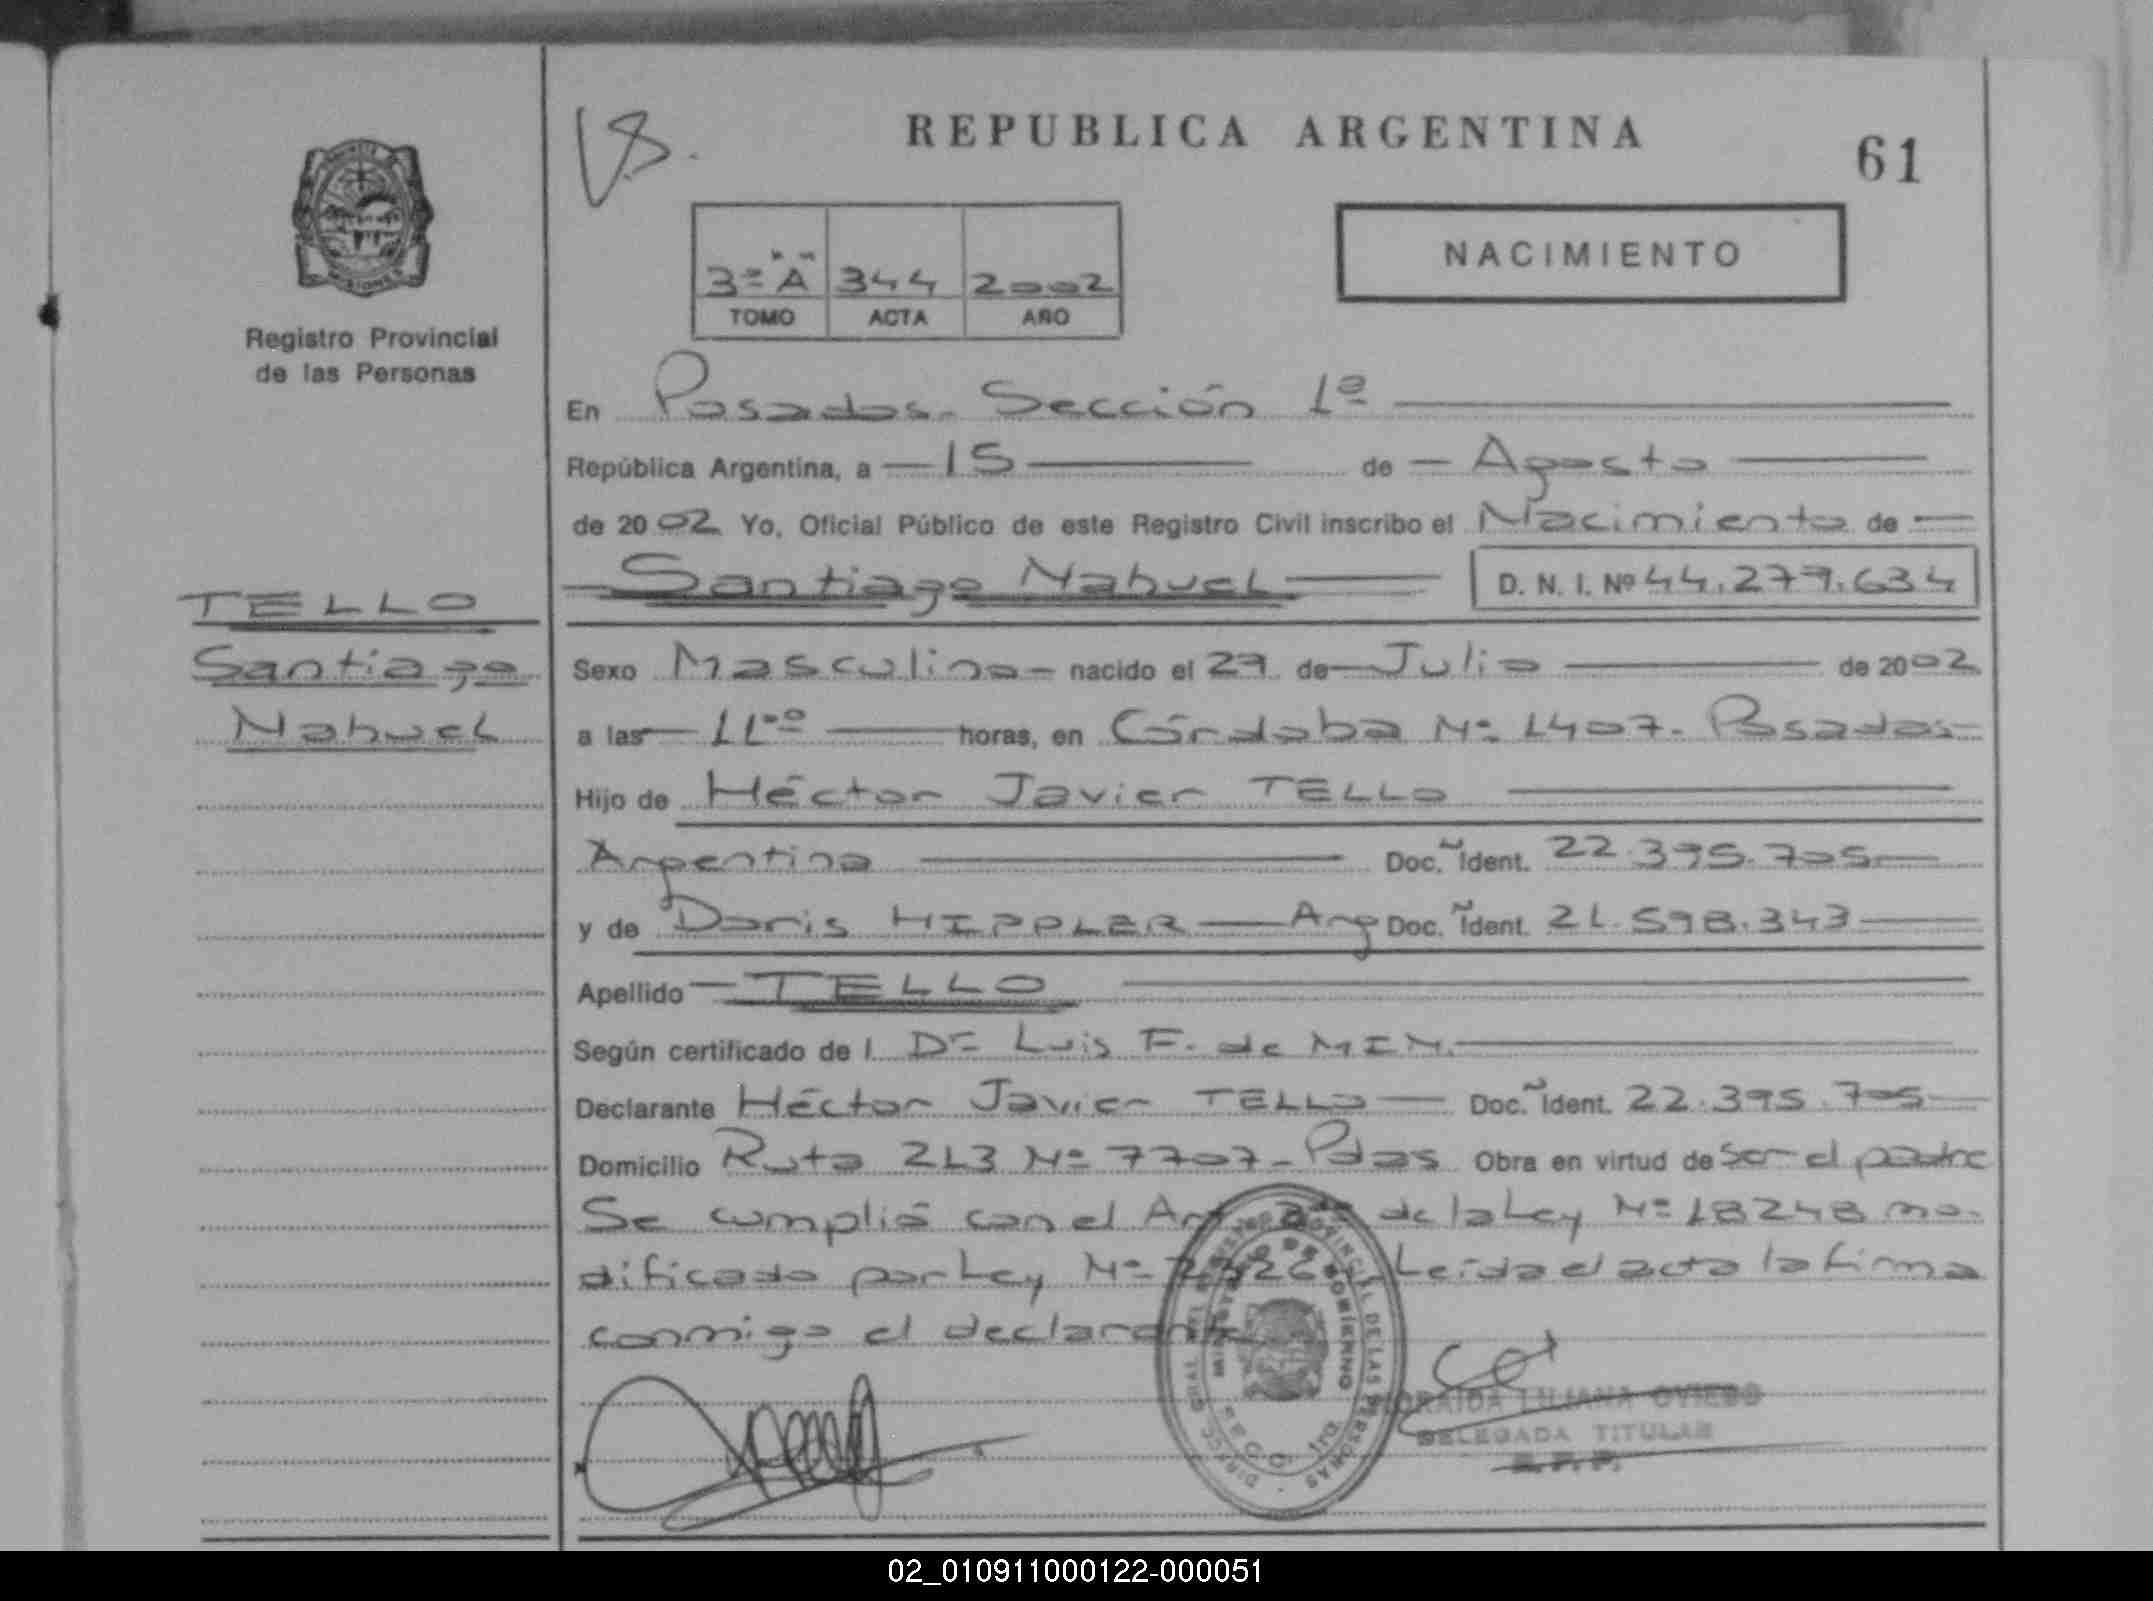 REPUBLICA ARGENTINA
61
3º "A" 344 2002
TOMO ACTA AÑO
NACIMIENTO
Registro Provincial
de las Personas
En Posadas - Sección 1ª
República Argentina, a 15 de Agosto
de 2002 Yo, Oficial Público de este Registro Civil inscribo el Nacimiento de
Santiago Nahuel D. N. I. Nº 44.279.634
TELLO
Santiago
Nahuel
Sexo Masculino nacido el 29 de Julio de 2002
a las 11ºº horas, en Córdoba Nº 1407 - Posadas
Hijo de Héctor Javier TELLO
Argentina Doc. Ident. 22.395.705
y de Doris HIPPLER Arg Doc. Ident. 21.598.343
Apellido TELLO
Según certificado de l Dr Luis F. de MIN.
Declarante Héctor Javier TELLO Doc. Ident. 22.395.705
Domicilio Ruta 213 Nº 7707 - Pdas Obra en virtud de ser el padre
Se cumplió con el Art de la Ley Nº 18248 mo-
dificado por Ley Nº Leída el acta la firma
conmigo el declarante
LILIANA OVIEDO
DELEGADA TITULAR
R.P.P.
02_010911000122-000051